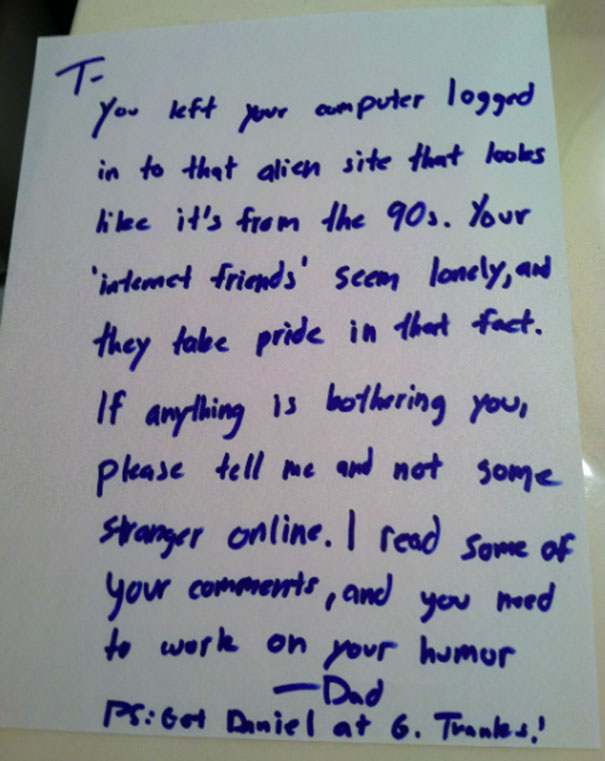 T-
You left your computer logged
in to that alien site that looks
like it's from the 90s. Your
'internet friends' seem lonely, and
they take pride in that fact.
If anything is bothering you,
please tell me and not some
stranger online. I read some of
your comments, and you need
to work on your humor
—Dad
PS: Get Daniel at 6. Thanks!